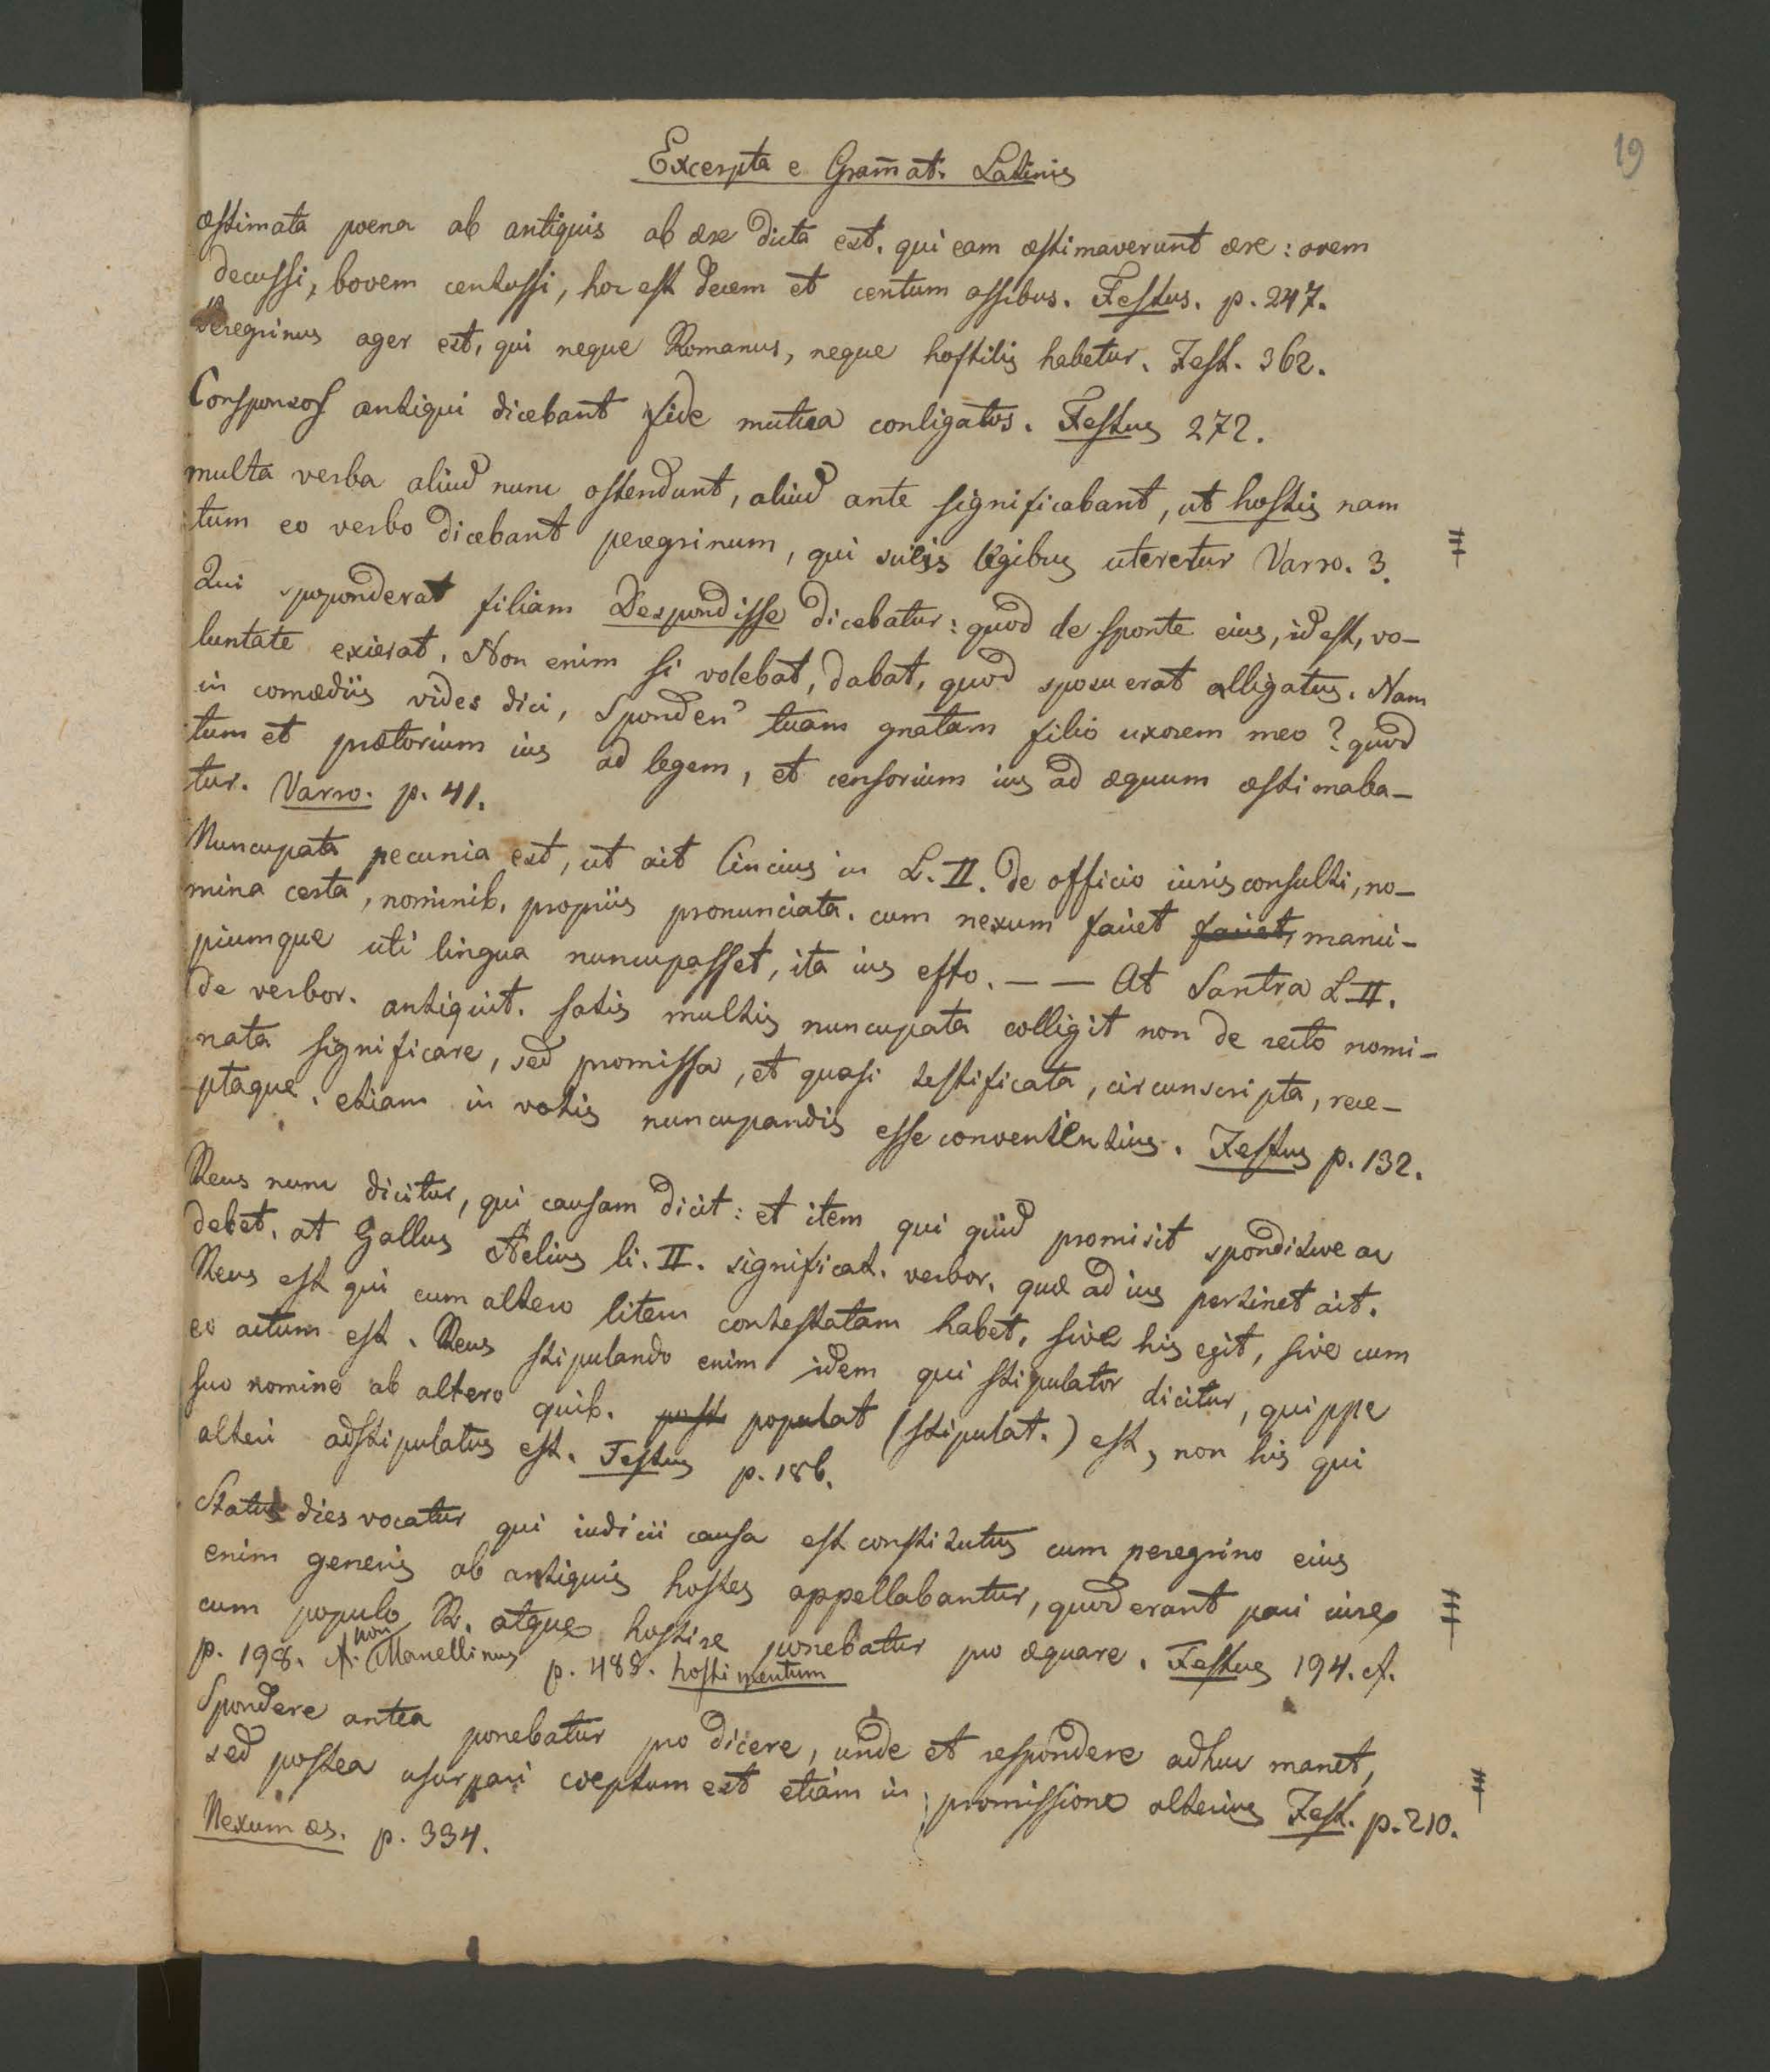 19
Excerpta e Gram̄at. Latinis
æstimata poena ab antiquis ab ære dicta est, qui eam æstimaverunt ære: ovem
decussi, bovem centussi, hoc est decem et centum assibus. Festus. p. 247.
Peregrinus ager est, qui neque Romanus, neque hostilis habetur. Fest. 362.
Consponsos antiqui dicebant fide mutua conligatos. Festus 272.
multa verba aliud nunc ostendunt, aliud ante significabant, ut hostis nam
tum eo verbo dicebant peregrinum, qui suis legibus uteretur Varro. 3.
Qui spoponderat filiam Despondisse dicebatur: quod de sponte eius, id est, vo-
luntate exierat. Non enim si volebat, dabat, quod sposuerat alligatus. Nam
in comœdiis vides dici, Sponden' tuam gnatam filio uxorem meo? quod
tum et prætorium ius ad legem, et censorium ius ad æquum æstimaba-
tur. Varro. p. 41.
Nuncupata pecunia est, ut ait Cincius in L. II. de officio iurisconsulti, no-
mina certa, nominib. propriis pronunciata. cum nexum faciet faciet, manci-
piumque uti lingua nuncupasset, ita ius esto. — — At Santra L. II.
de verbor. antiquit. satis multis nuncupata colligit non de recto nomi-
nata significare, sed promissa, et quasi testificata, circumscripta, rece-
ptaque. etiam in votis nuncupandis esse convenientius. Festus p. 132.
Reus nunc dicitur, qui causam dicit: et item qui quid promisit sponditve ac
debet. at Gallus Aelius li. II. significat. verbor. quæ ad ius pertinet ait.
Reus est qui cum altero litem contestatam habet, sive his egit, sive cum
eo actum est. Reus stipulando enim idem qui stipulator dicitur, quippe
suo nomine ab altero quib. post populat (stipulat.) est, non his qui
alteri adstipulatus est. Festus p. 186.
Status dies vocatur qui iudicii causa est constitutus cum peregrino eius
enim generis ab antiquis hostes appellabantur, quod erant pari iure
cum populo R. atque hostire ponebatur pro æquare. Festus 194. cf.
p. 198. cf. non Marcellinus p. 489. hostimentum
Spondere antea ponebatur pro dicere, unde et respondere adhuc manet,
sed postea usurpari cœptum est etiam in promissione alterius Fest. p. 210.
Nexum æs. p. 334.